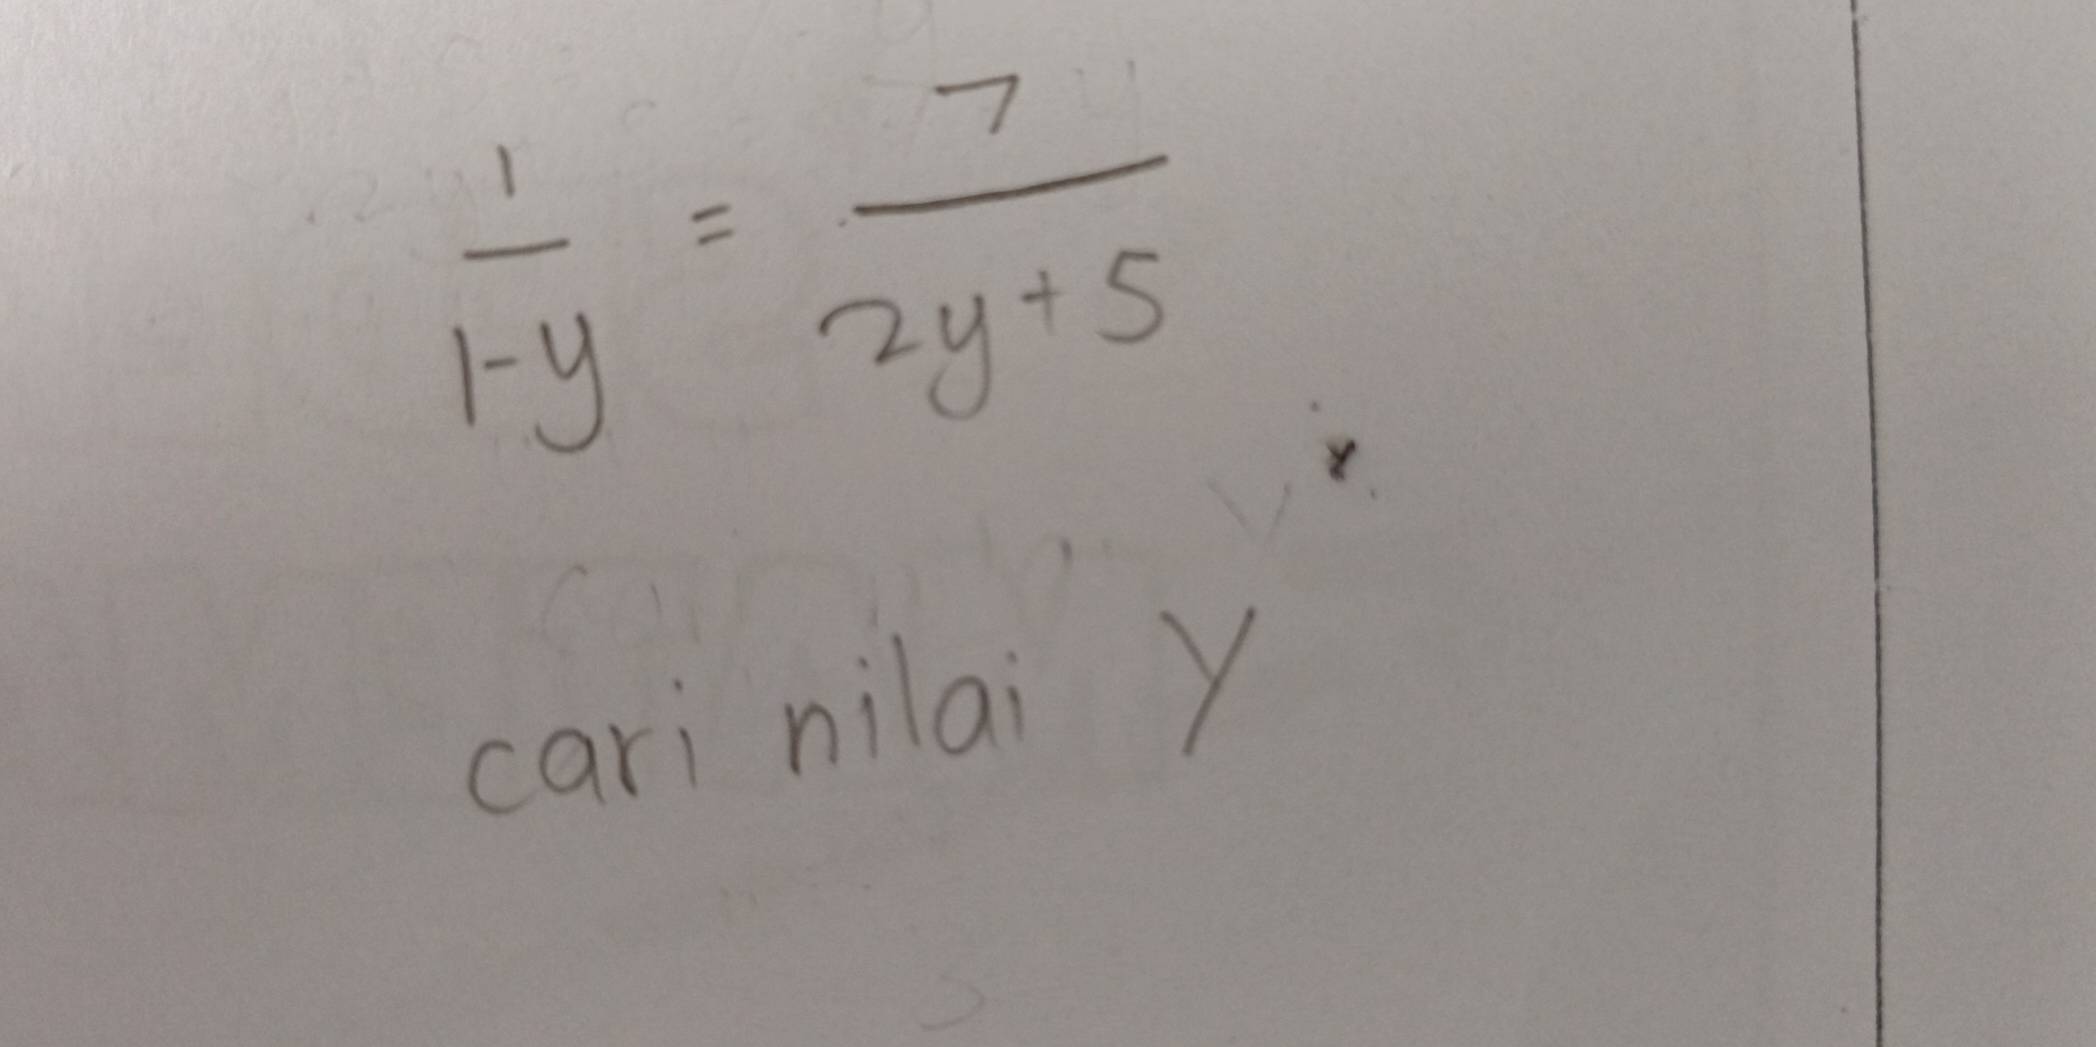 1/(1-y) = 7/(2y+5)
cari nilai y